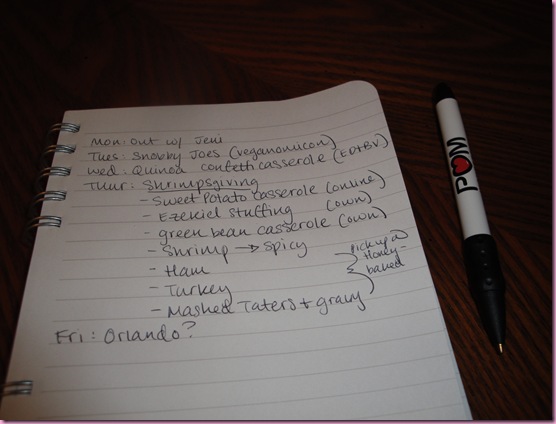 Mon: Out w/ Jeni
Tues: Snobby Joes (veganomicon)
Wed: Quinoa confetti casserole (EDtBV)
Thur: Shrimpsgiving
- Sweet Potato casserole (online)
- Ezekiel Stuffing (own)
- green bean casserole (own)
- Shrimp → Spicy
- Ham
- Turkey
- Mashed Taters + gravy
pick up @
Honey-
baked
Fri: Orlando?
POM